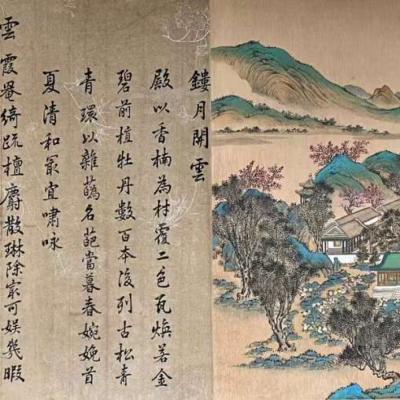 鏤月開雲
殿以香楠為材覆二色瓦煥若金
碧前植牡丹數百本後列古松青
青環以雜蘤名葩當暮春婉娩首
夏清和㝡宜嘯咏
雲霞罨綺疏檀麝散琳除㝡可娛幾暇